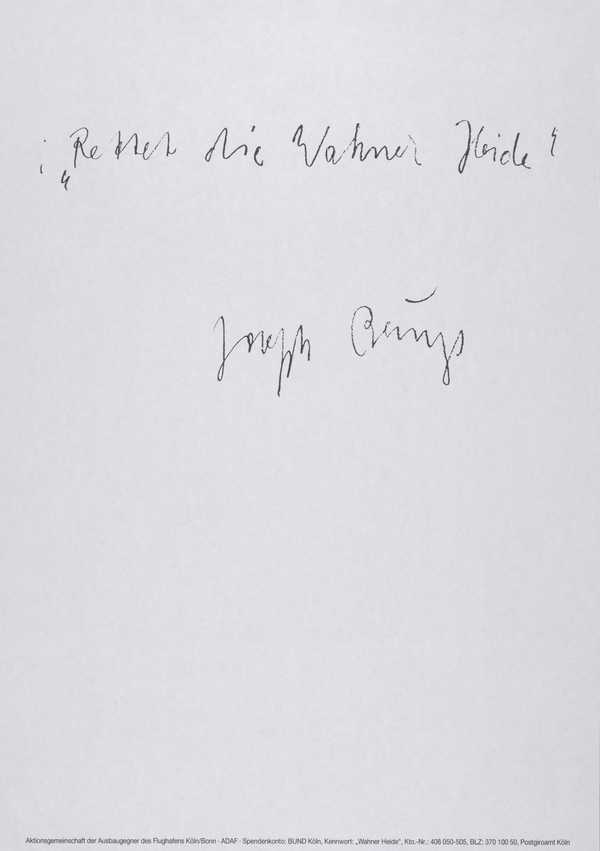 ¡„Rettet die Wahner Heide"
Joseph Beuys
Aktionsgemeinschaft der Ausbaugegner des Flughafens Köln/Bonn · ADAF · Spendenkonto: BUND Köln, Kennwort: „Wahner Heide", Kto.-Nr.: 406 050-505, BLZ: 370 100 50, Postgiroamt Köln